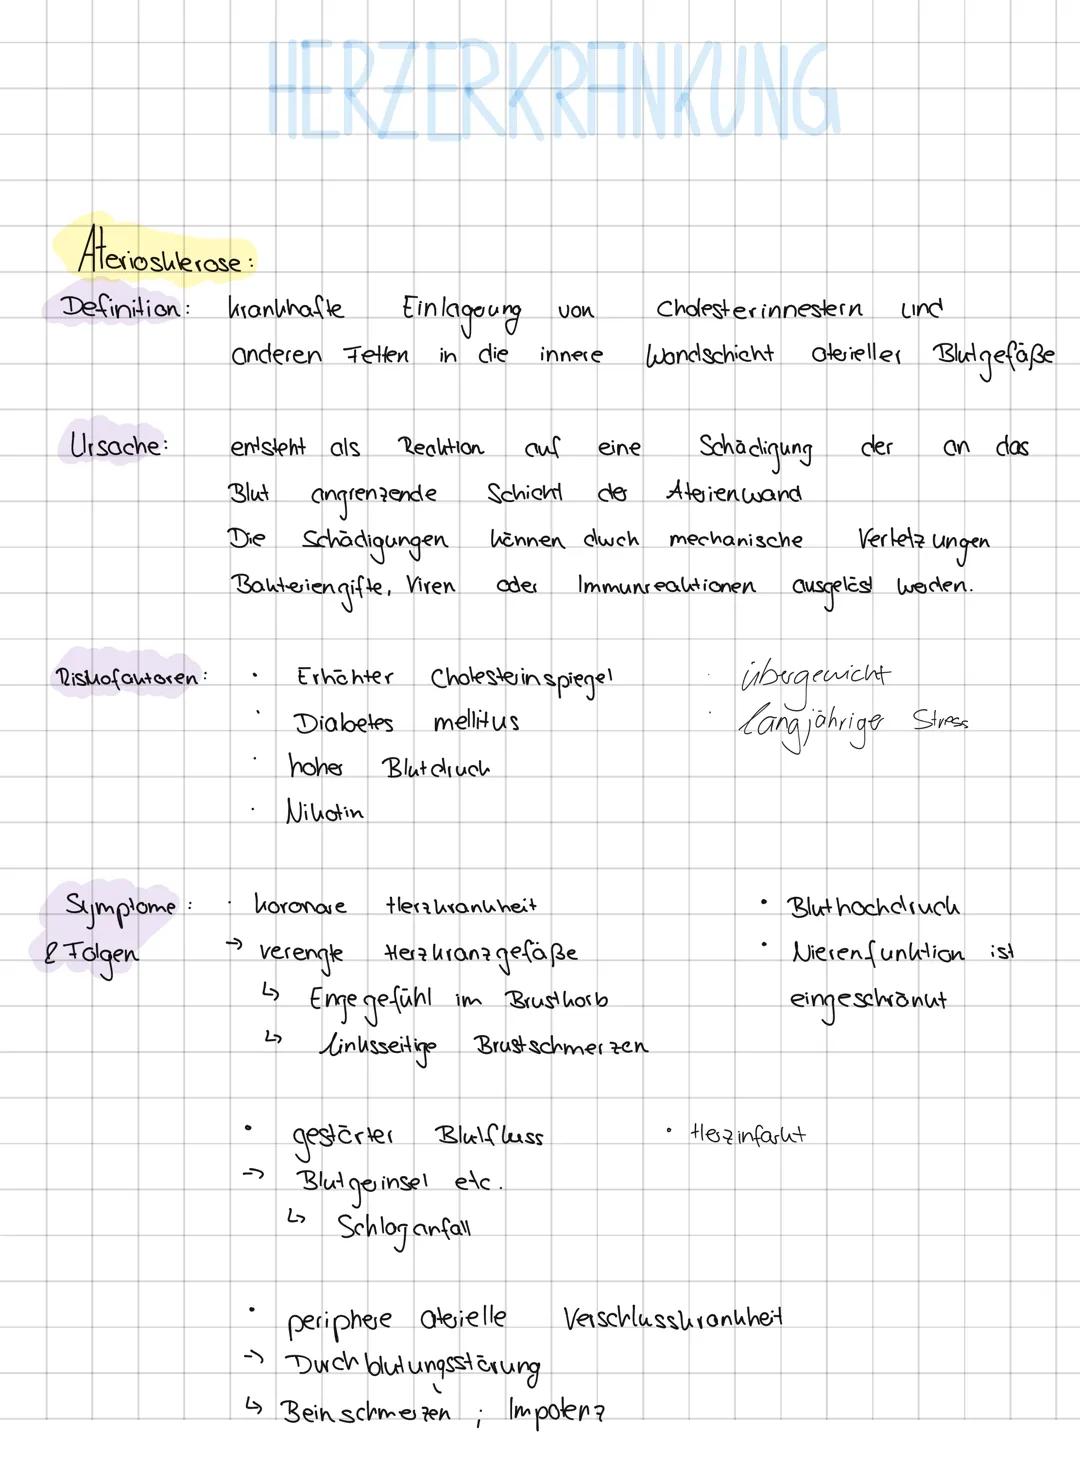 HERZERKRANKUNG
Aterioshlerose:
Definition: krankhafte Einlagerung von Cholesterinnestern und
anderen Fetten in die innere Wandschicht aterieller Blutgefäße
Ursache: entsteht als Reaktion auf eine Schädigung der an das
Blut angrenzende Schicht der Aterienwand
Die Schädigungen können durch mechanische Verletzungen
Bakteriengifte, Viren oder Immunreaktionen ausgelöst werden.
Risikofaktoren: · Erhöhter Cholesterinspiegel · übergewicht
· Diabetes mellitus · langjähriger Stress
· hoher Blutdruck
· Nikotin
Symptome: · koronare Herzkrankheit • Bluthochdruck
& Folgen → verengte Herzkranzgefäße • Nierenfunktion ist
↳ Engegefühl im Brustkorb eingeschränkt
↳ linksseitige Brustschmerzen
• gestörter Blutfluss • Herzinfarkt
→ Blutgerinsel etc.
↳ Schlaganfall
• periphere aterielle Verschlusskrankheit
→ Durchblutungsstörung
↳ Beinschmerzen ; Impotenz